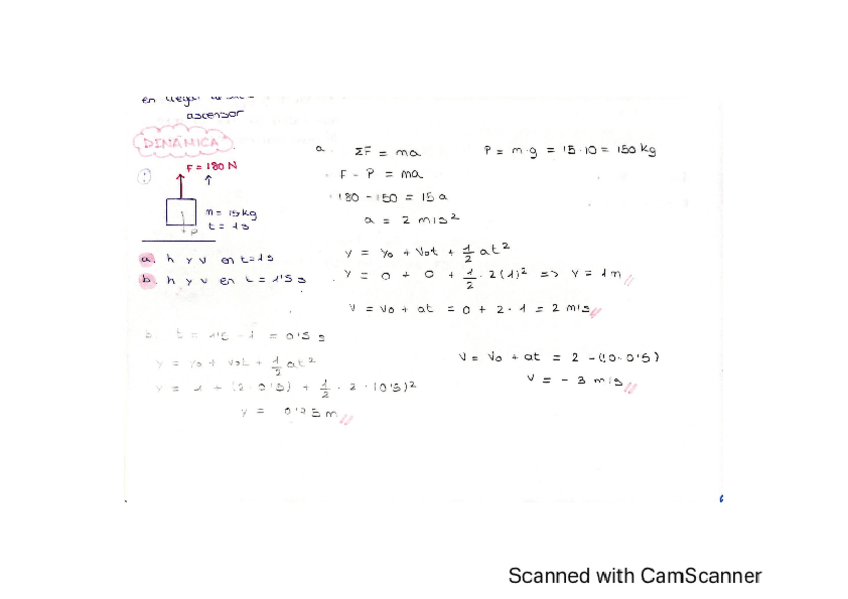 en llegar
ascensor
DINÁMICA
F = 180 N
m = 15 kg
t = 1s
P
a. h y v en t=1s
b. h y v en t = 1'5 s
a. ΣF = ma
P = m·g = 15·10 = 150 kg
F - P = ma
180 - 150 = 15 a
a = 2 m/s²
y = y₀ + v₀t + 1/2 at²
y = 0 + 0 + 1/2 · 2 (1)² => y = 1m
v = v₀ + at = 0 + 2·1 = 2 m/s
b. t = 1'5 - 1 = 0'5 s
y = y₀ + v₀t + 1/2 at²
y = 1 + (2·0'5) + 1/2 · 2 · (0'5)²
y = 0'75 m
v = v₀ + at = 2 - (10·0'5)
v = - 3 m/s
Scanned with CamScanner